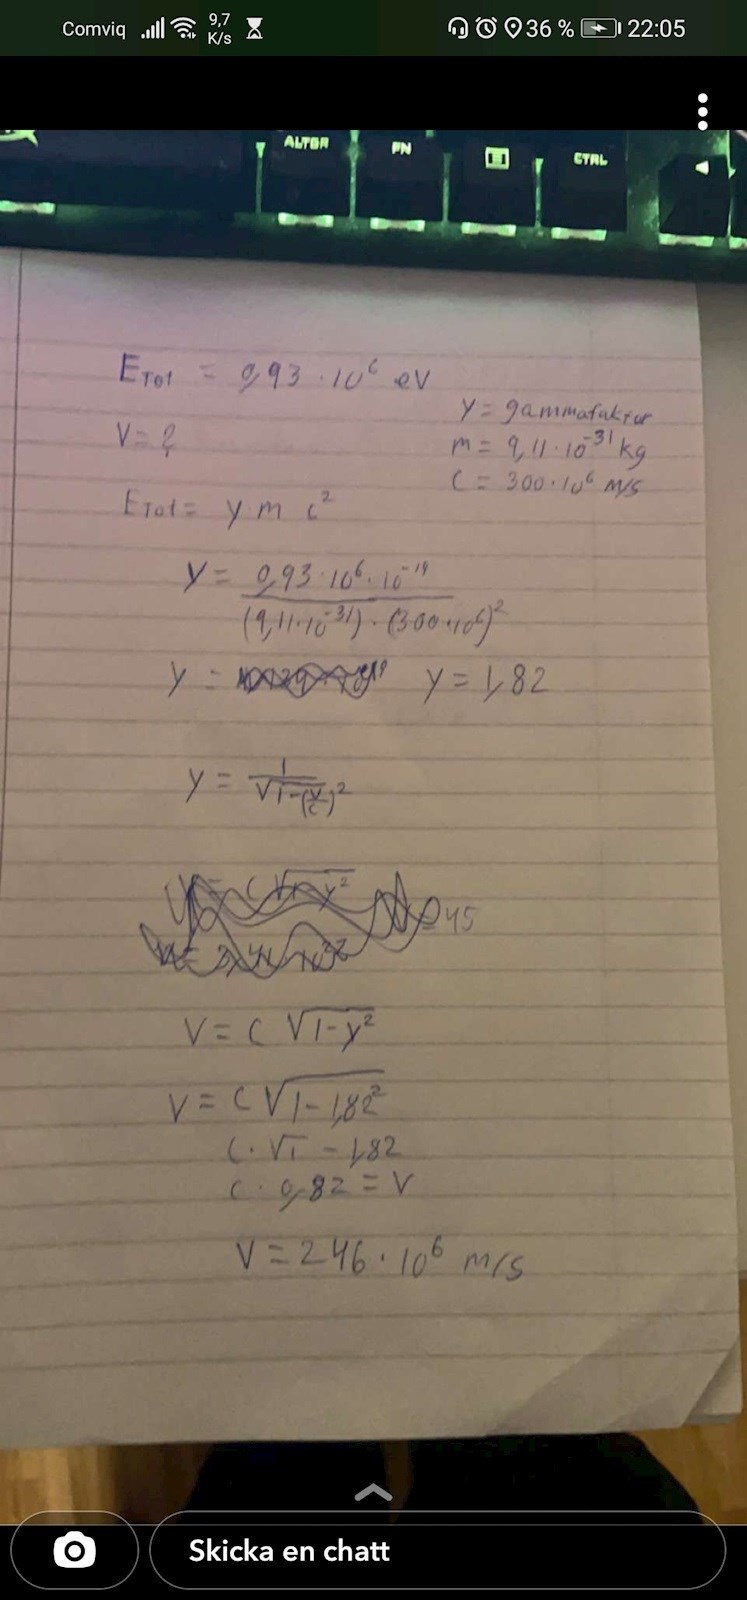 Comviq 9,7 K/s 36 % 22:05
ALTGR FN CTRL
E_Tot = 0,93 · 10^6 eV
y = gammafaktor
V = ?
m = 9,11 · 10^-31 kg
C = 300 · 10^6 m/s
E_Tot = y m c^2
y = 0,93 · 10^6 · 10^-19
(9,11 · 10^-31) · (300 · 10^6)^2
y = y = 1,82
y = 1
√1-(v/c)^2
45
V = C √1-y^2
V = C √1-1,82^2
C · √1 - 1,82
C · 0,82 = V
V = 246 · 10^6 m/s
Skicka en chatt